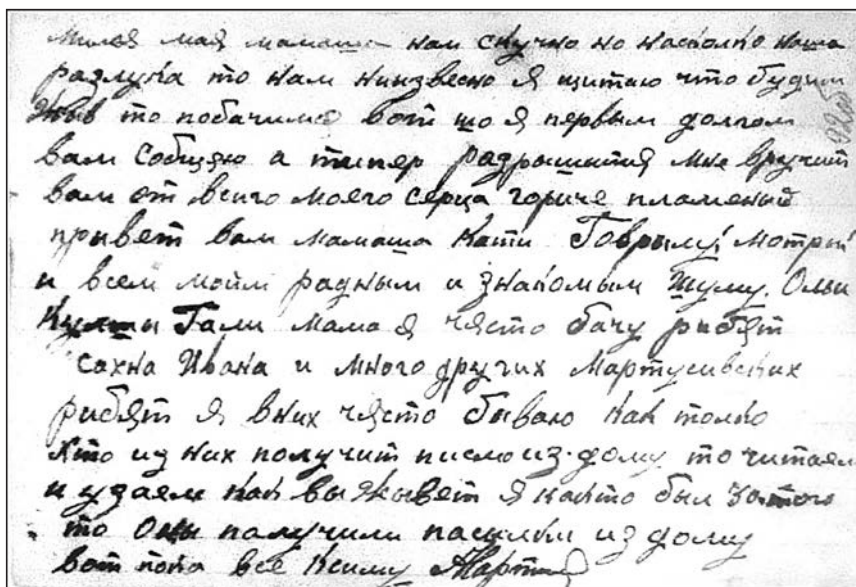 милая мая мамаша нам скучно но насколко наша
разлука то нам ниизвесно я щитаю что будим
жыв то побачимся вот шо я первым долгом
вам собщяю а типер разрышытя мне вручит
вам от всиго моего серца горяче пламеный
прывет вам мамаша Кати Гаврылу Мотрый
и всем мойм радным и знакомым Шуму Ольы
Гали мама я чясто бачу рибят
Сахна Ивана и много других Мартусивских
рибят я вних чясто бываю как толко
хто из них получит писмо из дому то читаем
и узаем как вы жывет я както был
то оны палучили пасылкы из дому
вот пока все ксиму Мартин